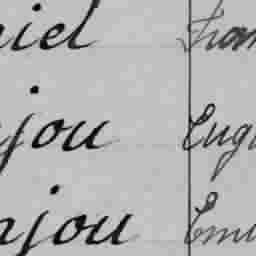 niel Fran
njou Eug
njou Emi